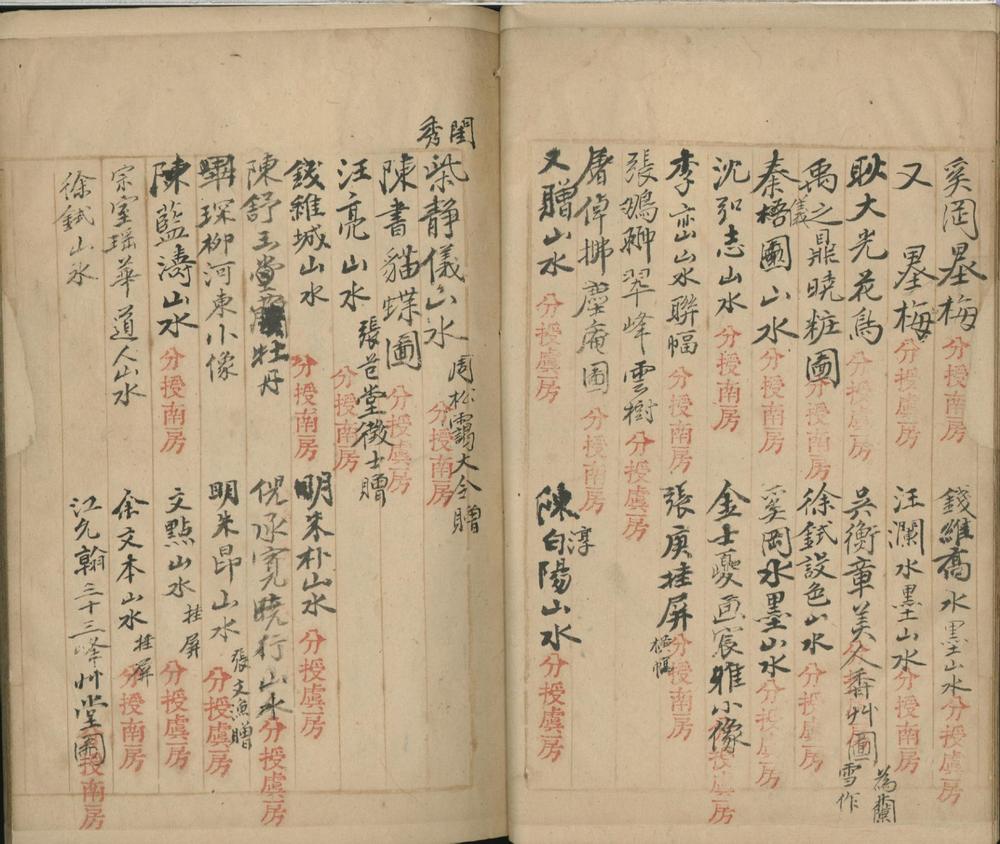 奚岡墨梅 分授虞房 錢維喬水墨山水 分授虞房
又 墨梅 分授虞房 汪瀾水墨山水 分授南房
耿大光花鳥 分授南房 吳衡章美人香艸圖 為蘭雪作
禹之鼎曉粧圖 分授虞房 徐鉽設色山水 分授虞房
秦梧園儀山水 分授虞房 奚岡水墨山水 分授虞房
沈弘志山水 分授南房 金士夔画宸雅小像 分授虞房
李峦山水聯幅 分授南房 張庚挂屏 分授南房
張鵷翀翠峰雲樹 分授虞房
屠倬拂塵庵圖 分授南房
又贈山水 分授虞房 陳白陽淳山水 分授虞房
閨秀
柴靜儀山水 周松靄大令贈 分授南房
陳書貓蝶圖 分授虞房
汪亮山水 張芑堂徵士贈 分授南房
錢維城山水 分授南房 明朱朴山水 分授虞房
陳舒玉堂牡丹 倪承寬曉行山水 分授虞房
畢琛柳河東小像 明朱昂山水 張文漁贈 分授虞房
陳藍濤山水 分授南房 文點山水 挂屏 分授虞房
宗室瑶華道人山水 余文本山水 挂屏 分授南房
徐鉽山水 江允翰三十三峰艸堂圖 分授南房